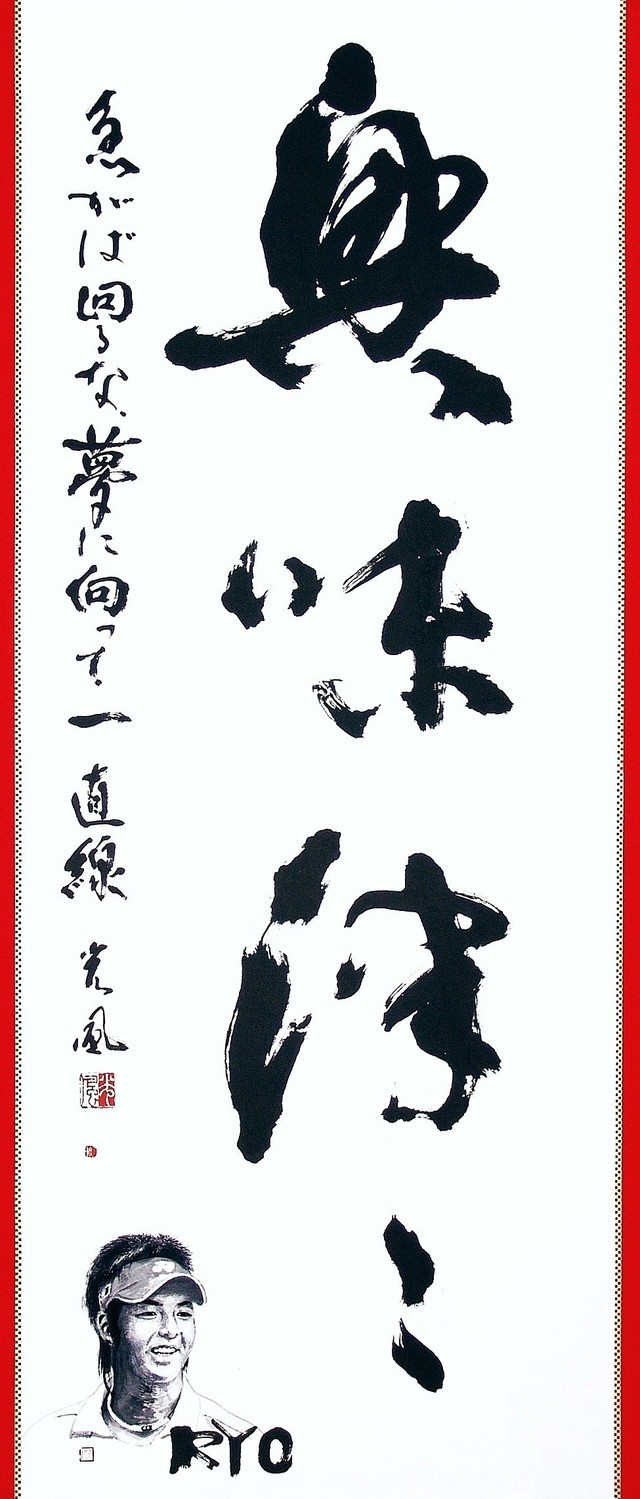 興味津々
急がば回るな、夢に向って一直線 光風
RYO